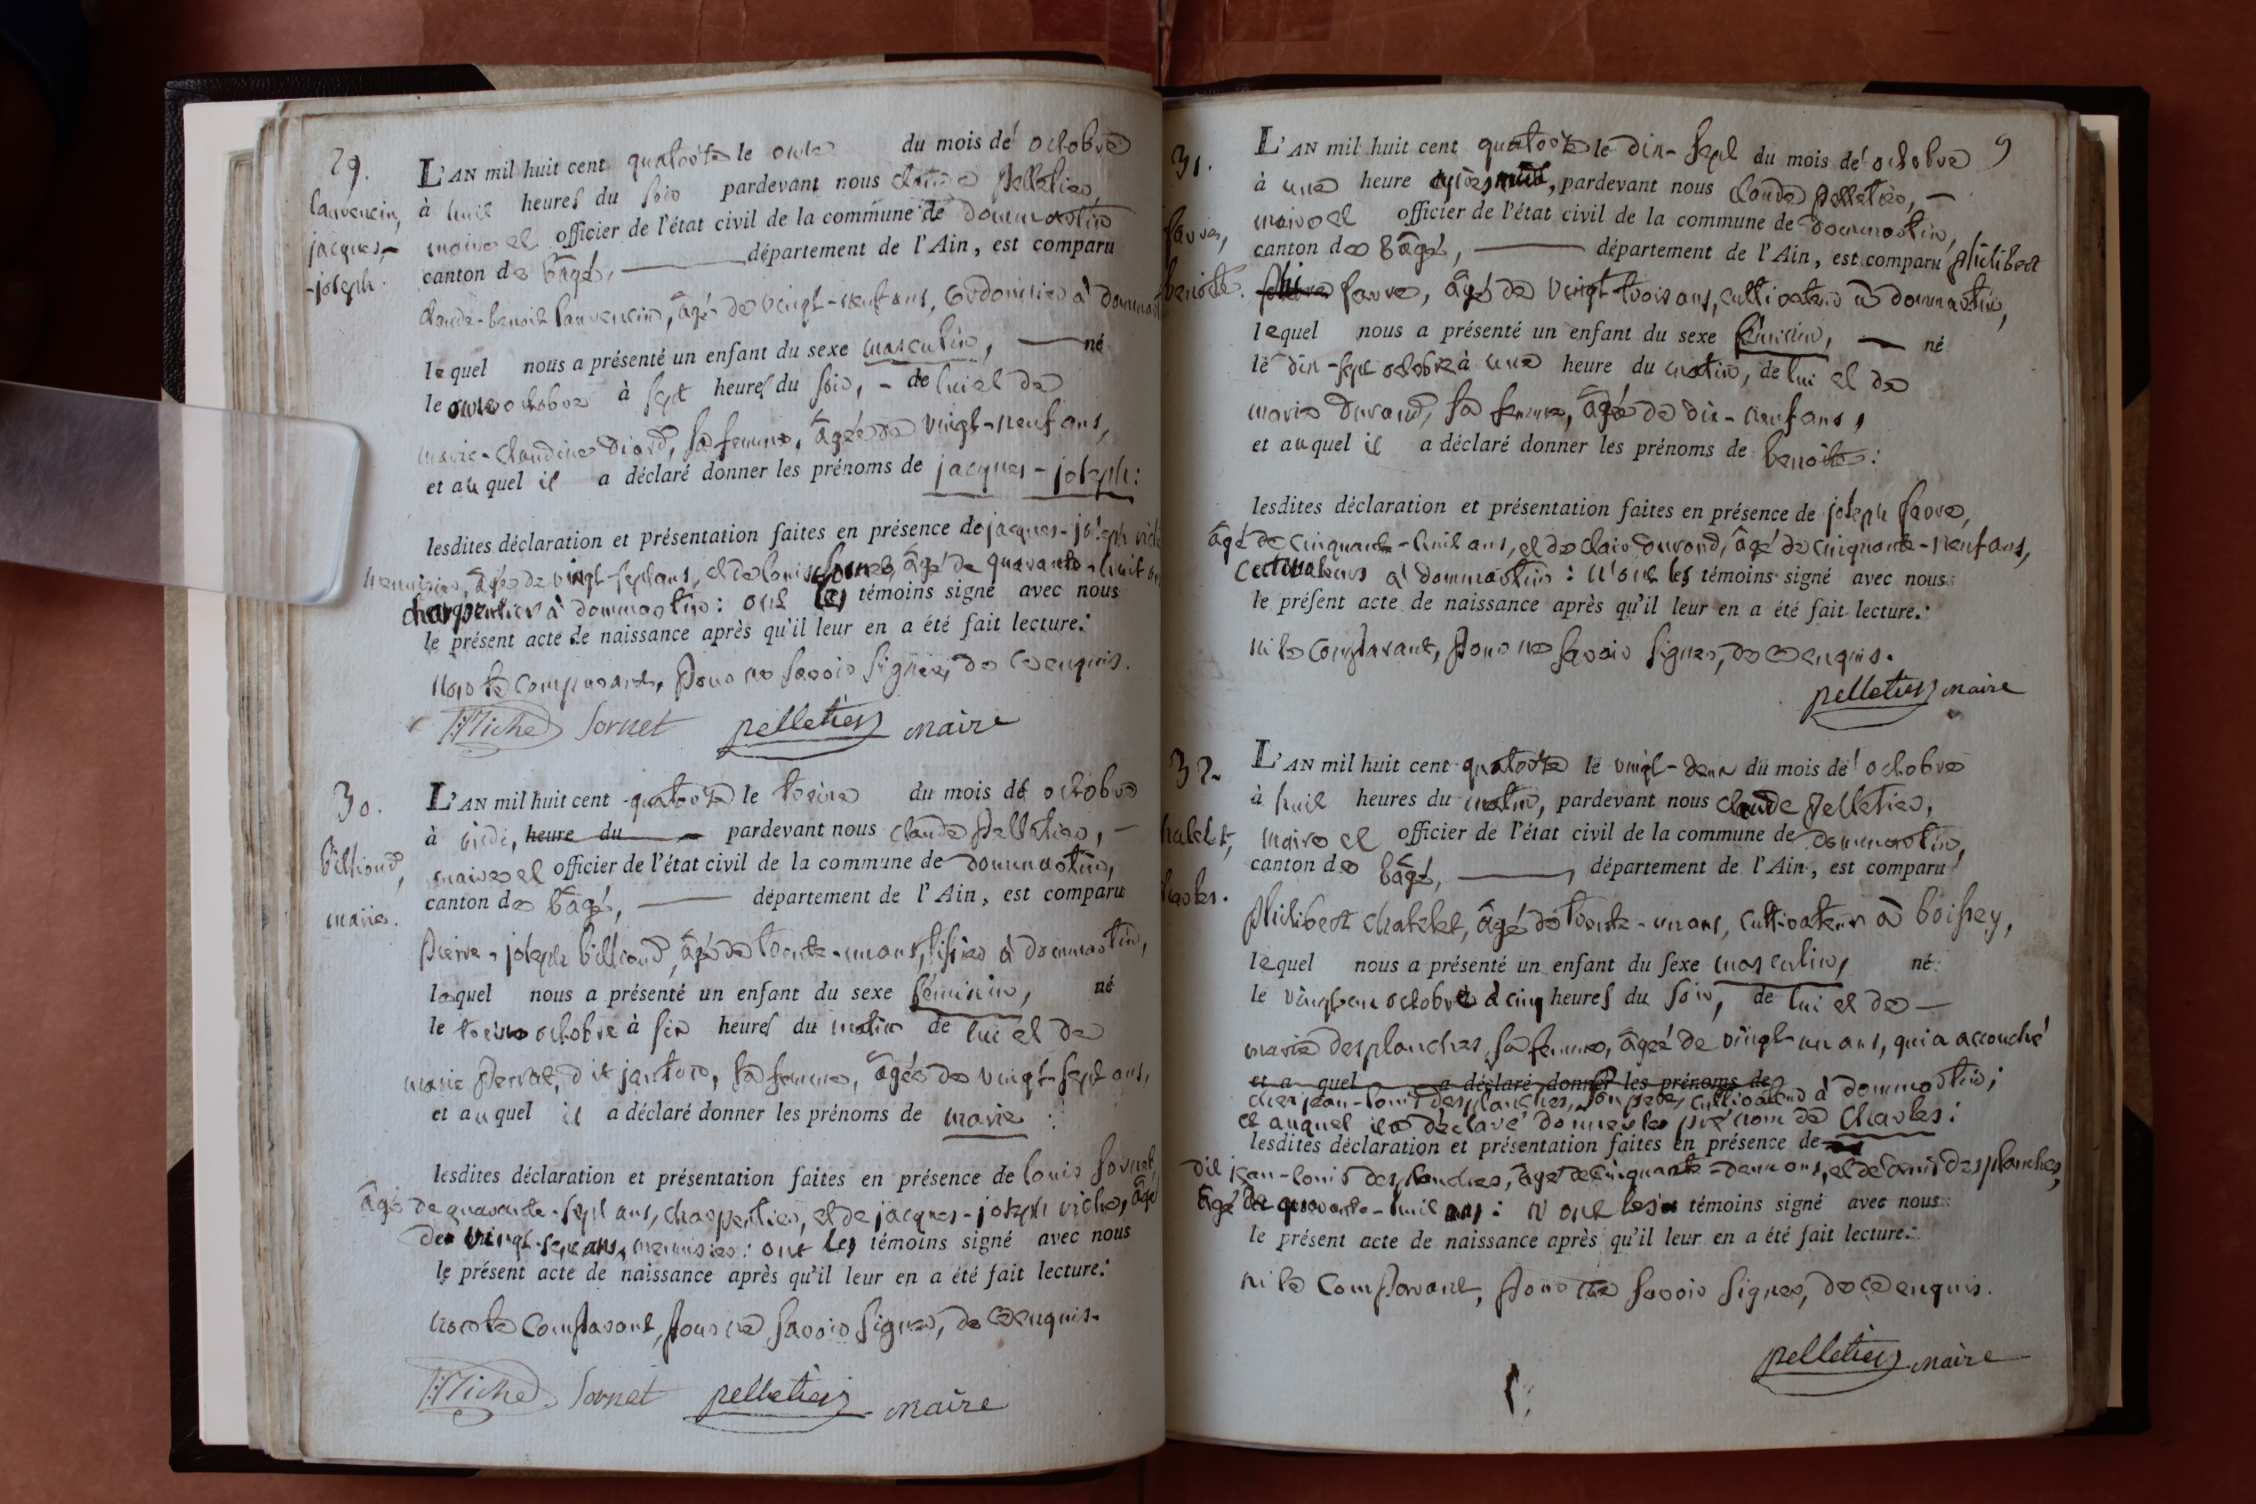 29.
Lauvencin,
jacques-
-joseph.
L'AN mil huit cent quatorze le onze du mois de octobre
à huit heures du soir pardevant nous claude pelletier,
maire et officier de l'état civil de la commune de dommartin
canton de bâgé, département de l'Ain, est comparu
claude-benoit Lauvencin, âgé de vingt-neuf ans, cordonnier à dommart
lequel nous a présenté un enfant du sexe masculin, né
le onze octobre à sept heures du soir, - de lui et de
marie-claudine diard, sa femme, âgée de vingt-neuf ans,
et auquel il a déclaré donner les prénoms de jacques-joseph:
lesdites déclaration et présentation faites en présence de jacques-joseph viché
menuisier, âgé de vingt-sept ans, et de louis sornet, âgé de quarante-huit an
charpentier à dommartin: ont les témoins signé avec nous
le présent acte de naissance après qu'il leur en a été fait lecture.
non le comparant, pour ne savoir signer, de ce enquis.
JJ Viché Sornet pelletier maire
30.
billioud,
marie.
L'AN mil huit cent quatorze le treize du mois de octobre
à midi, heure du pardevant nous claude pelletier, -
maire et officier de l'état civil de la commune de dommartin,
canton de bâgé, département de l'Ain, est comparu
pierre-joseph billioud, âgé de trente-un ans, tissier à dommartin,
lequel nous a présenté un enfant du sexe féminin, né
le treize octobre à six heures du matin de lui et de
marie perrat, dit jantoro, sa femme, âgée de vingt-sept ans,
et auquel il a déclaré donner les prénoms de marie:
lesdites déclaration et présentation faites en présence de louis sornet,
âgé de quarante-sept ans, charpentier, et de jacques-joseph viché, âgé
de vingt-sept ans, menuisier: ont les témoins signé avec nous
le présent acte de naissance après qu'il leur en a été fait lecture:
non le comparant, pour ne savoir signer, de ce enquis.
JJ Viché Sornet pelletier maire
9
31.
favre,
benoite.
L'AN mil huit cent quatorze le dix-sept du mois de octobre
à une heure après midi, pardevant nous claude pelletier, -
maire et officier de l'état civil de la commune de dommartin,
canton de bâgé, département de l'Ain, est comparu philibert
favre, âgé de vingt-trois ans, cultivateur à dommartin,
lequel nous a présenté un enfant du sexe féminin, né
le dix-sept octobre à une heure du matin, de lui et de
marie durand, sa femme, âgée de dix-neuf ans,
et auquel il a déclaré donner les prénoms de benoite:
lesdites déclaration et présentation faites en présence de joseph favre,
âgé de cinquante-huit ans, et de clair durand, âgé de cinquante-neuf ans,
cultivateurs à dommartin: n'ont les témoins signé avec nous
le présent acte de naissance après qu'il leur en a été fait lecture.
ni le comparant, pour ne savoir signer, de ce enquis.
pelletier maire
32.
hatelet,
harles.
L'AN mil huit cent quatorze le vingt-deux du mois de octobre
à huit heures du matin, pardevant nous claude pelletier,
maire et officier de l'état civil de la commune de dommartin,
canton de bâgé, département de l'Ain, est comparu
philibert chatelet, âgé de trente-un ans, cultivateur à boissey,
lequel nous a présenté un enfant du sexe masculin, né
le vingt-un octobre à cinq heures du soir, de lui et de -
marie desplanches, sa femme, âgée de vingt-un ans, qui a accouché
et a quel a déclaré donner les prénoms de
chez jean-louis desplanches, son père, cultivateur à dommartin;
et auquel il a déclaré donner le prénom de charles:
lesdites déclaration et présentation faites en présence de
dit jean-louis desplanches, âgé de cinquante-deux ans, et de denis desplanches,
âgé de quarante-huit ans: n'ont les témoins signé avec nous
le présent acte de naissance après qu'il leur en a été fait lecture.
ni le comparant, pour ne savoir signer, de ce enquis.
pelletier maire